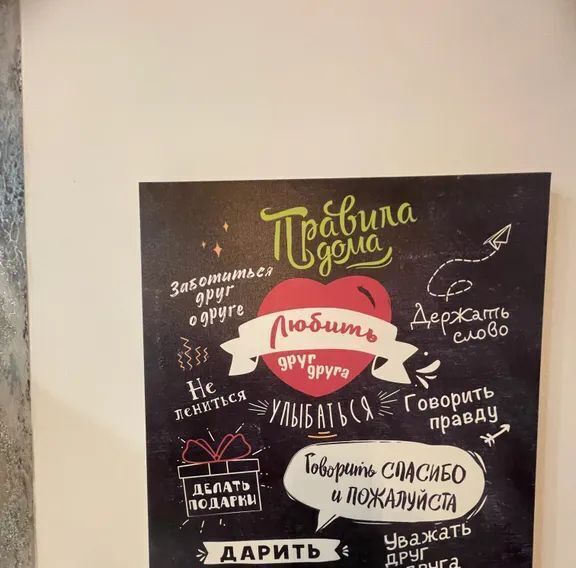 Правила
дома
Заботиться
друг
о друге
Любить
друг
друга
Держать
слово
Не
лениться
УЛЫБАТЬСЯ
Говорить
правду
ДЕЛАТЬ
ПОДАРКИ
Говорить СПАСИБО
и ПОЖАЛУЙСТА
ДАРИТЬ
Уважать
ДРУГ